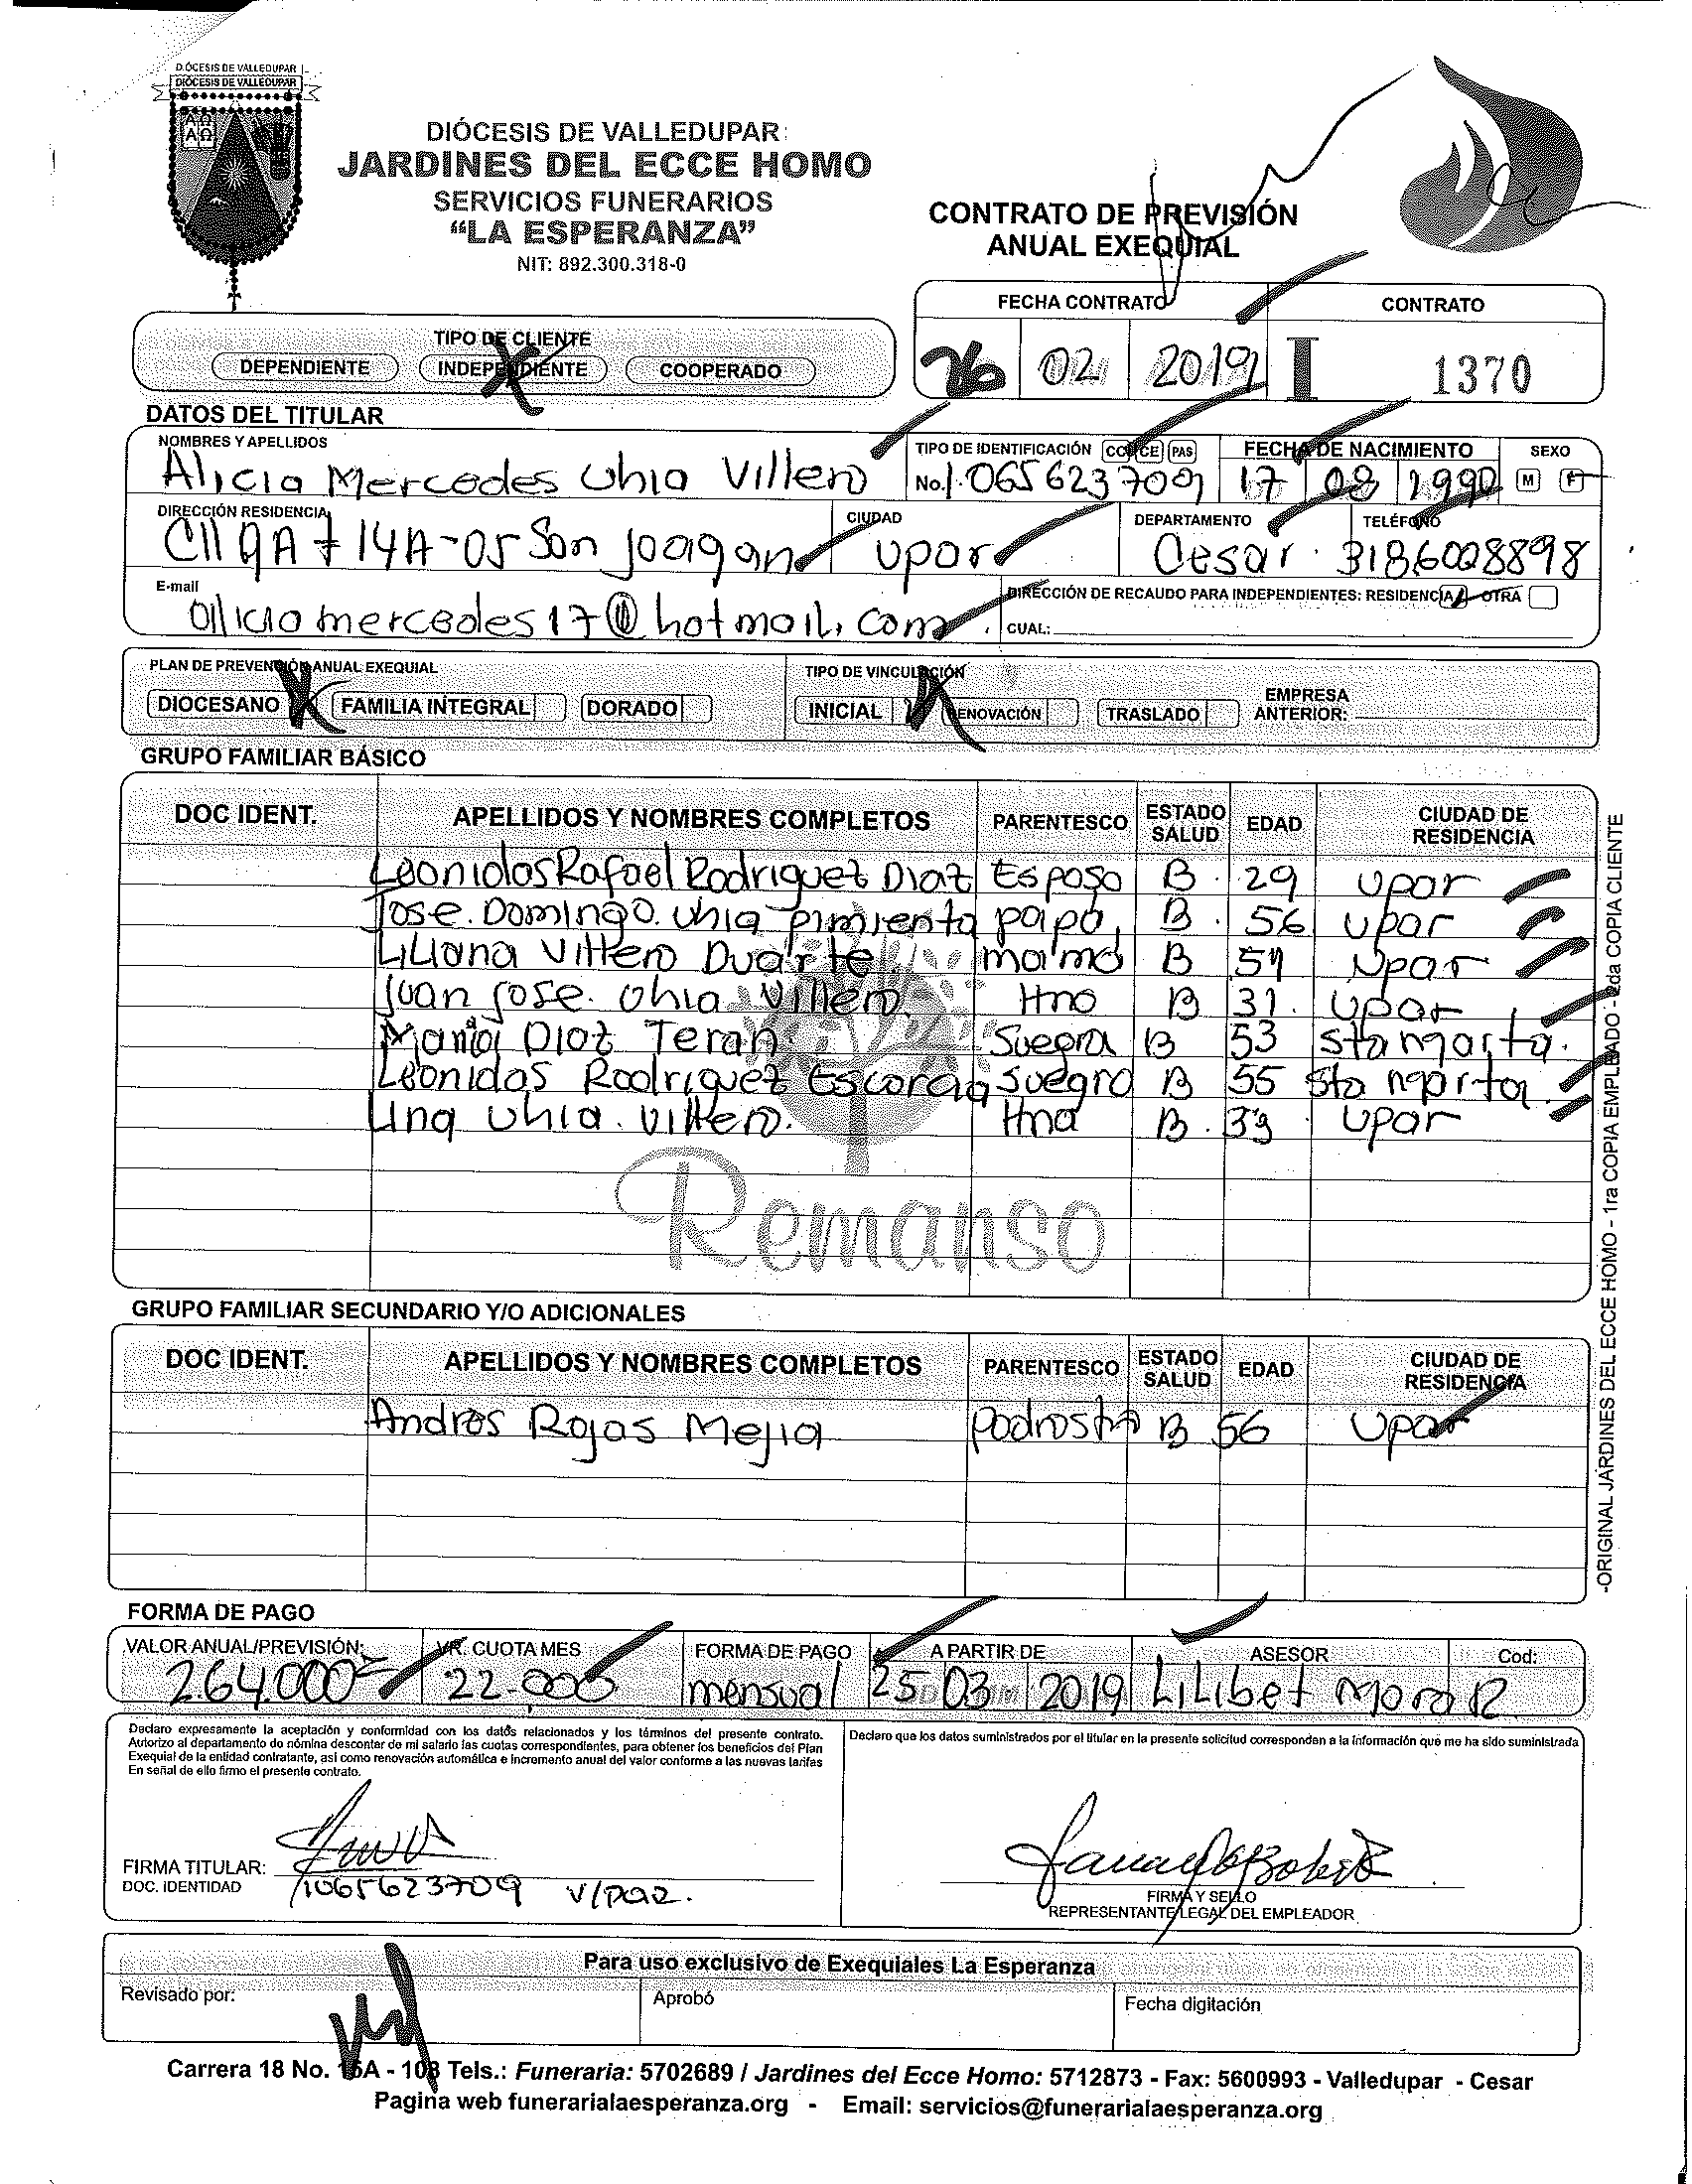 DIÓCESIS DE VALLEDUPAR
DIÓCESIS DE VALLEDUPAR
DIÓCESIS DE VALLEDUPAR:
JARDINES DEL ECCE HOMO
SERVICIOS FUNERARIOS
“LA ESPERANZA”
NIT: 892.300.318-0
CONTRATO DE PREVISIÓN
ANUAL EXEQUIAL
FECHA CONTRATO CONTRATO
26 02 2019 I 1370
TIPO DE CLIENTE
DEPENDIENTE INDEPENDIENTE COOPERADO
DATOS DEL TITULAR
NOMBRES Y APELLIDOS TIPO DE IDENTIFICACIÓN CC CE PAS FECHA DE NACIMIENTO SEXO
Alicia Mercedes Uhia Villero No. 1.065623709 17 08 1990 M F
DIRECCIÓN RESIDENCIA CIUDAD DEPARTAMENTO TELÉFONO
Cll 9A # 14A-05 San Joaqan Upar Cesar 3186008898
E-mail DIRECCIÓN DE RECAUDO PARA INDEPENDIENTES: RESIDENCIA OTRA
aliciamercedes17@hotmail.com CUAL:
PLAN DE PREVENCIÓN ANUAL EXEQUIAL TIPO DE VINCULACIÓN
DIOCESANO FAMILIA INTEGRAL DORADO INICIAL RENOVACIÓN TRASLADO EMPRESA ANTERIOR:
GRUPO FAMILIAR BÁSICO
DOC IDENT. APELLIDOS Y NOMBRES COMPLETOS PARENTESCO ESTADO SALUD EDAD CIUDAD DE RESIDENCIA
Leonidas Rafael Rodriguez Diaz Esposo B 29 Upar
Jose Domingo Uhia Pimienta papa B 56 Upar
Liliana Villero Duarte mama B 51 Upar
Juan Jose Uhia Villero Hno B 31 Upar
Maria Diaz Teran Suegra B 53 Sta marta
Leonidas Rodriguez Escorcia Suegro B 55 Sta marta
Lina Uhia Villero Hna B 33 Upar
Remanso
GRUPO FAMILIAR SECUNDARIO Y/O ADICIONALES
DOC IDENT. APELLIDOS Y NOMBRES COMPLETOS PARENTESCO ESTADO SALUD EDAD CIUDAD DE RESIDENCIA
Andres Rojas Mejia Padrasto B 56 Upar
-ORIGINAL JARDINES DEL ECCE HOMO - 1ra COPIA EMPLEADO - 2da COPIA CLIENTE
FORMA DE PAGO
VALOR ANUAL/PREVISIÓN: VR. CUOTA MES FORMA DE PAGO A PARTIR DE ASESOR Cod:
264.000 22.000 mensual 25 03 2019 Lilibet Mora R
Declaro expresamente la aceptación y conformidad con los datos relacionados y los términos del presente contrato.
Autorizo al departamento de nómina descontar de mi salario las cuotas correspondientes, para obtener los beneficios del Plan
Exequial de la entidad contratante, así como renovación automática e incremento anual del valor conforme a las nuevas tarifas
En señal de ello firmo el presente contrato.
Declaro que los datos suministrados por el titular en la presente solicitud corresponden a la información que me ha sido suministrada
FIRMA TITULAR:
DOC. IDENTIDAD 1065623709 V/par.
FIRMA Y SELLO
REPRESENTANTE LEGAL DEL EMPLEADOR
Para uso exclusivo de Exequiales La Esperanza
Revisado por: Aprobó Fecha digitación
Carrera 18 No. 16A - 108 Tels.: Funeraria: 5702689 / Jardines del Ecce Homo: 5712873 - Fax: 5600993 - Valledupar - Cesar
Pagina web funerarialaesperanza.org - Email: servicios@funerarialaesperanza.org